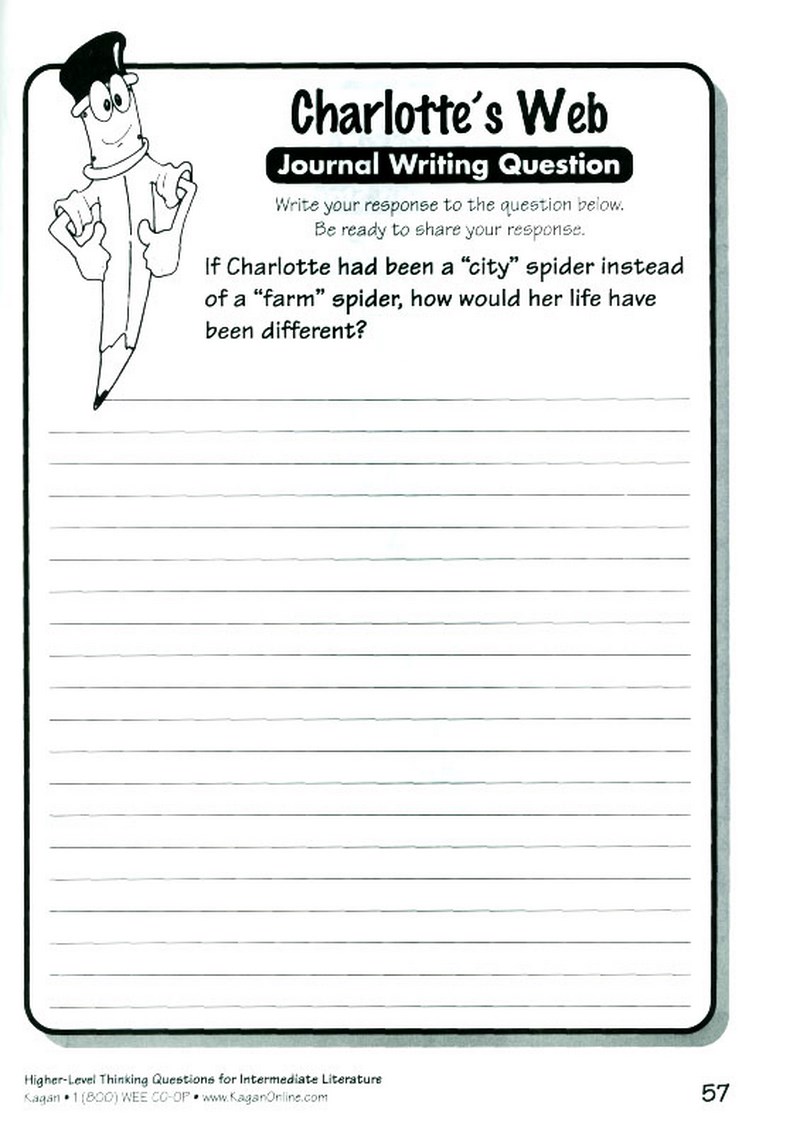 Charlotte's Web
Journal Writing Question
Write your response to the question below.
Be ready to share your response.
If Charlotte had been a “city” spider instead
of a “farm” spider, how would her life have
been different?
Higher-Level Thinking Questions for Intermediate Literature
Kagan • 1 (800) WEE CO-OP • www.KaganOnline.com
57